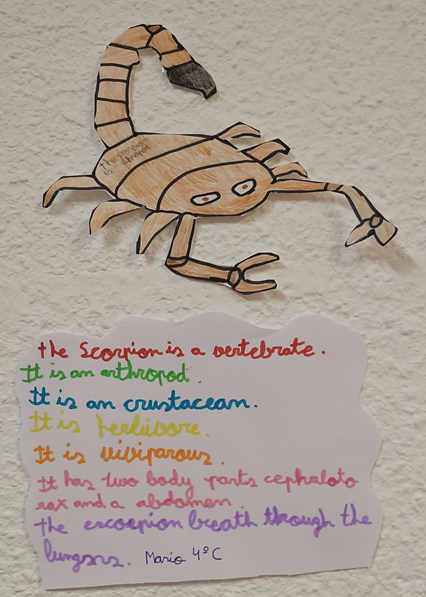 the scorpion
is artropod
the Scorpion is a vertebrate.
It is an arthropod.
It is an crustacean.
It is herbivore.
It is viviparous.
It has two body parts cephaloto
rax and a abdomen
the escorpion breath through the
lungsrs. Mario 4º C